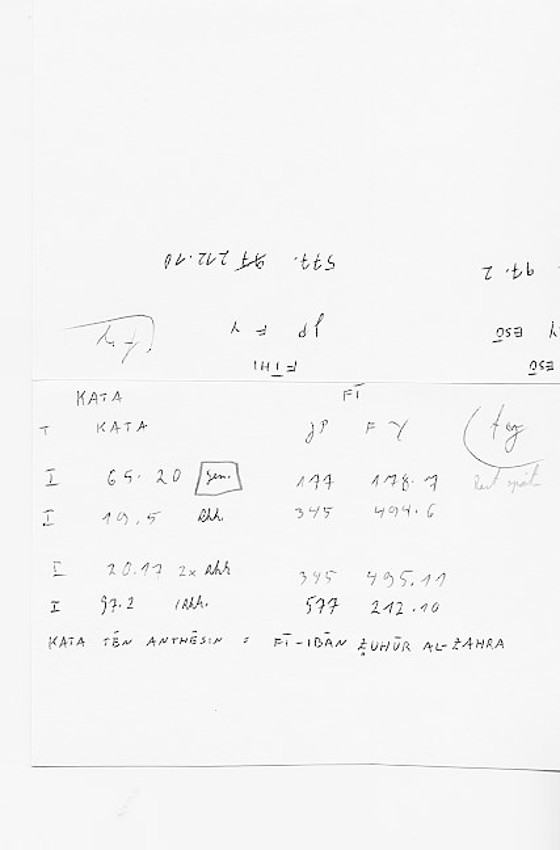 577. 97 212.10
97. 2
JP F Y
ESŌ
FĪHI
ESŌ
KATA FĪ
T KATA JP F Y
I 65. 20 Gen. 177 178.7
I 19.5 Akk. 345 494.6
I 20.17 2x Akk 345 495.11
I 97.2 1 Akk. 577 212.10
KATA TĒN ANTHĒSIN = FĪ-IBĀN ẒUHŪR AL-ZAHRA